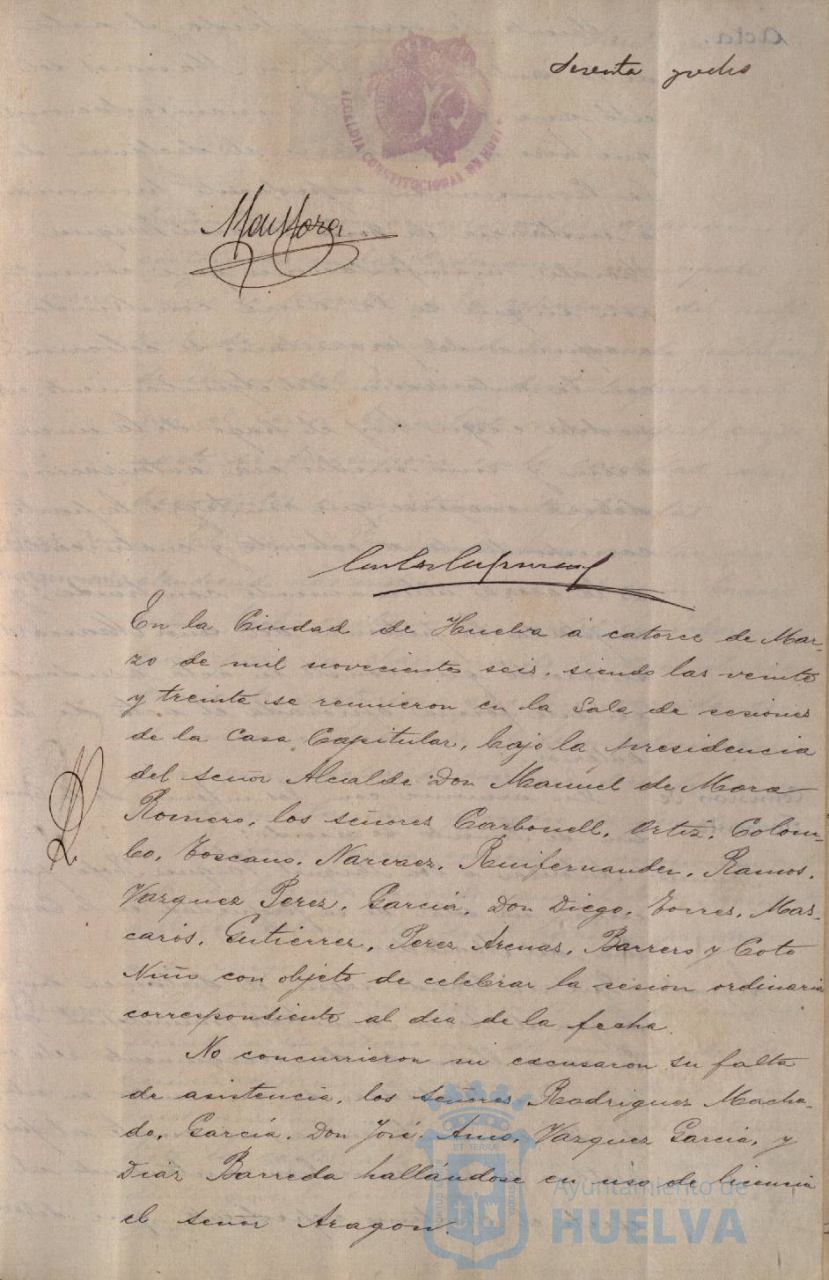 ALCALDIA CONSTITUCIONAL DE HUELVA
Sesenta y ocho
M de Mora
En la Ciudad de Huelva á catorce de Mar-
zo de mil novecientos seis, siendo las veinte
y treinta se reunieron en la Sala de sesiones
de la Casa Capitular, bajo la presidencia
del señor Alcalde Don Manuel de Mora
Romero, los señores Carbonell, Ortiz, Colom-
bo, Toscano, Narvaez, Ruifernandez, Ramos,
Vazquez Perez, García, Don Diego, Torres, Mas-
carós, Gutierrez, Perez Arenas, Barrero y Coto
Niño con objeto de celebrar la sesión ordinaria
correspondiente al dia de la fecha.
No concurrieron ni excusaron su falta
de asistencia, los señores Rodriguez Macha-
do, García, Don José, Amo, Vazquez Garcia, y
Diáz Barreda hallándose en uso de licencia
el señor Aragon.
Ayuntamiento de
HUELVA